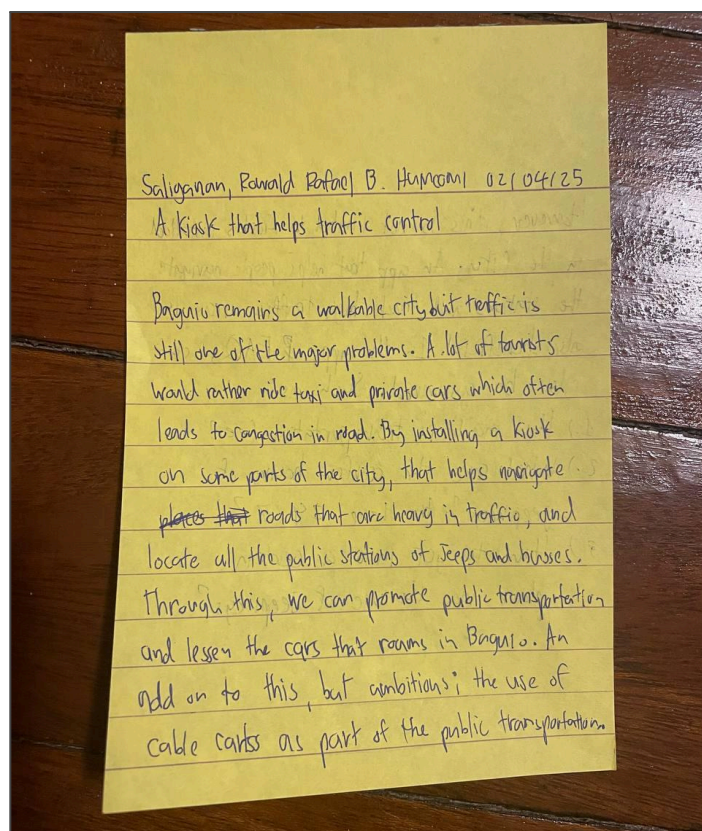 Saliganan, Rowald Rafael B. HUMCOM1 02/04/25
A Kiosk that helps traffic control
Baguio remains a walkable city but traffic is
still one of the major problems. A lot of tourists
would rather ride taxi and private cars which often
leads to congestion in road. By installing a kiosk
on some parts of the city, that helps navigate
places that roads that are heavy in traffic, and
locate all the public stations of Jeeps and busses.
Through this, we can promote public transportation
and lessen the cars that roams in Baguio. An
add on to this, but ambitious; the use of
cable carts as part of the public transportation.